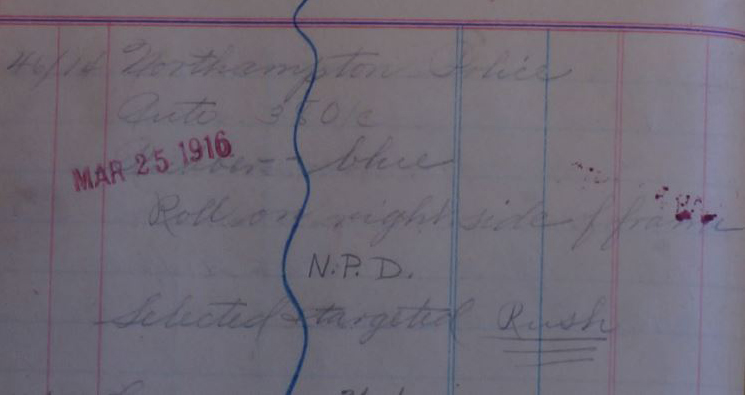 Northampton Police
Auto 350/c
MAR 25 1916
- blue
Roll on right side of frame
N.P.D.
Selected & targeted Rush